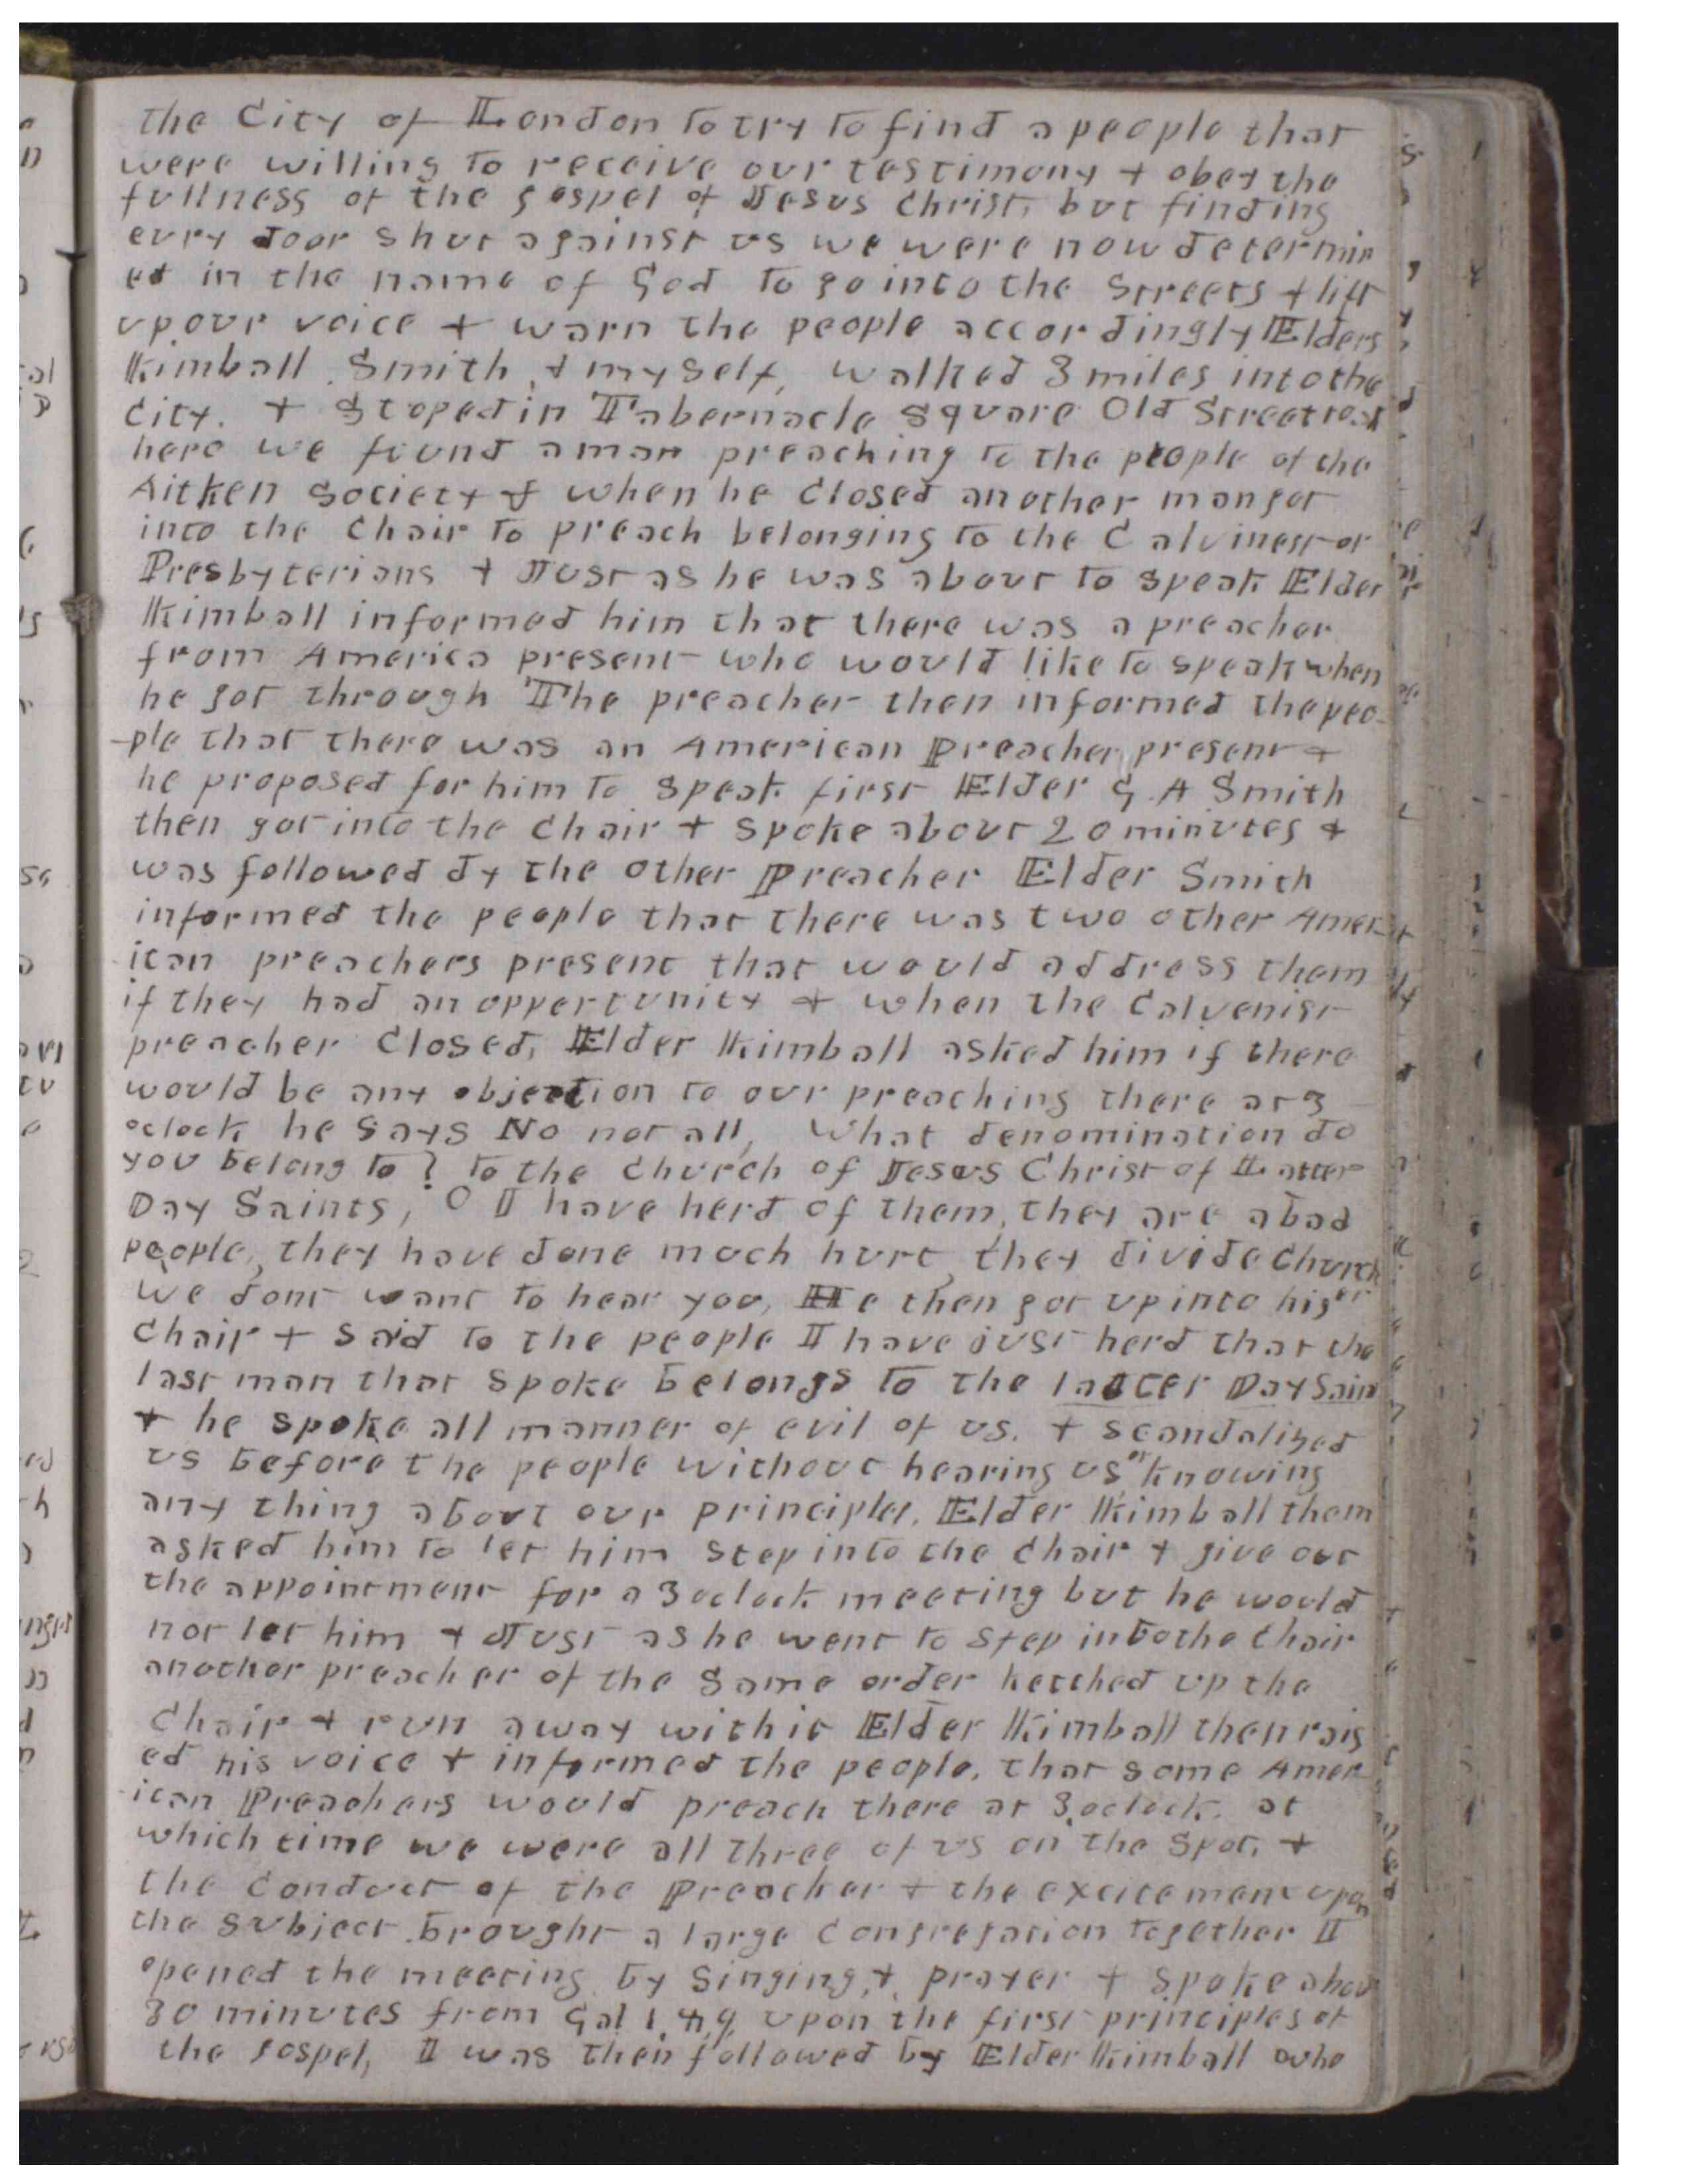 the City of London to try to find a people that
were willing to receive our testimony & obey the
fullness of the gospel of Jesus Christ, but finding
evry door shut against us we were now determin
ed in the name of God to go into the Streets & lift
up our voice & warn the people accordingly Elders
Kimball Smith & myself, walked 3 miles into the
City. & Stoped in Tabernacle Square Old Street
here we found a man preaching to the people of the
Aitken Society & when he Closed another man got
into the Chair to preach belonging to the Calvinest or
Presbyterians & Just as he was about to speak Elder
Kimball informed him that there was a preacher
from America present who would like to speak when
he got through The preacher then informed the peo-
-ple that there was an American Preacher present &
he proposed for him to Speak first Elder G A Smith
then got into the Chair & Spoke about 20 minutes &
was followed dy the other Preacher Elder Smith
informed the people that there was two other Amer-
-ican preachers present that would address them
if they had an oppertunity & when the Calvenist
preacher Closed, Elder Kimball asked him if there
would be any objection to our preaching there at 3
oclock he Says No not all, What denomination do
you belong to? to the Church of Jesus Christ of Latter
Day Saints, O I have herd of them, they are a bad
people, they have done much hurt, they divide Church
we dont want to hear you, He then got up into his
Chair & said to the people I have just herd that the
last man that Spoke belongs to the latter Day Sain
& he spoke all manner of evil of us. & scandalized
us before the people without hearing us or knowing
any thing about our principles. Elder Kimball them
asked him to let him Step into the Chair & give out
the appointment for a 3 oclock meeting but he would
not let him & Just as he went to Step into the Chair
another preacher of the Same order ketched up the
Chair & run away with it Elder Kimball then rais
ed his voice & informed the people, that some Amer
-ican Preachers would preach there at 3, oclock. at
which time we were all three of us on the Spot, &
the Conduct of the Preacher & the excitement upon
the subject brought a large Congregation together I
opened the meeting by Singing, & prayer & Spoke abou
30 minutes from Gal 1, 8, 9, upon the first principles of
the gospel, I was then followed by Elder Kimball who